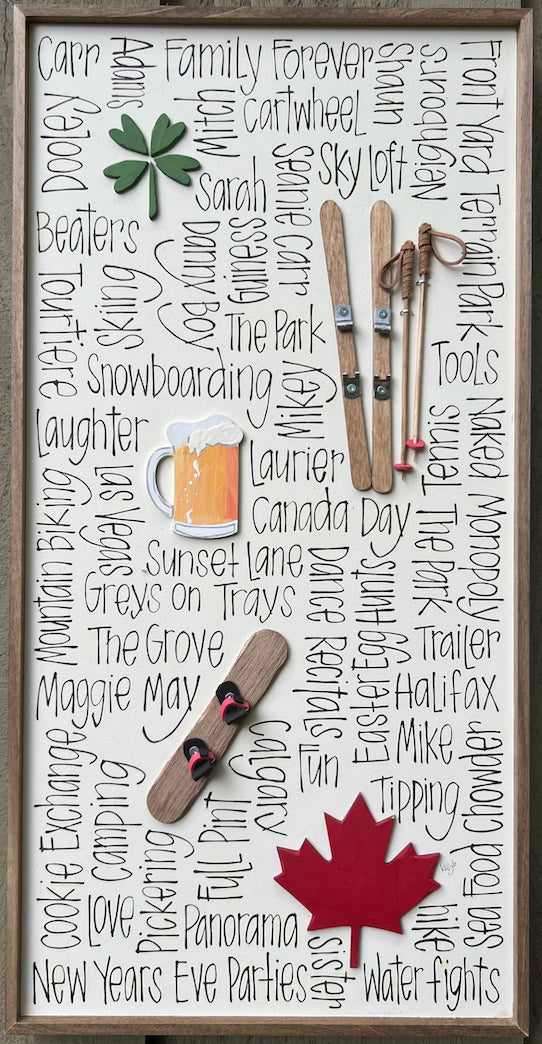 Carr
Adams
Family Forever
Shaun
Neighbours
Front Yard Terrain Park
Dooley
Mitch
Cartwheel
Sky Loft
Sarah
Seanie Carr
Beaters
Danny Boy
Guiness
Skiing
Tourtiere
The Park
Tools
Snowboarding
Mikey
Laughter
Laurier
Tennis
Naked Monopoly
Las Vegas
Mountain Biking
Canada Day
The Park
Sunset Lane
Dance Recitals
Easter Egg Hunts
Greys on Trays
The Grove
Trailer
Maggie May
Halifax
Mike
Calgary
Fun
Cookie Exchange
Camping
Tipping
Seafood Chowder
Full Pint
Pickering
Love
Panorama
hike
sister
New Years Eve Parties
Water fights